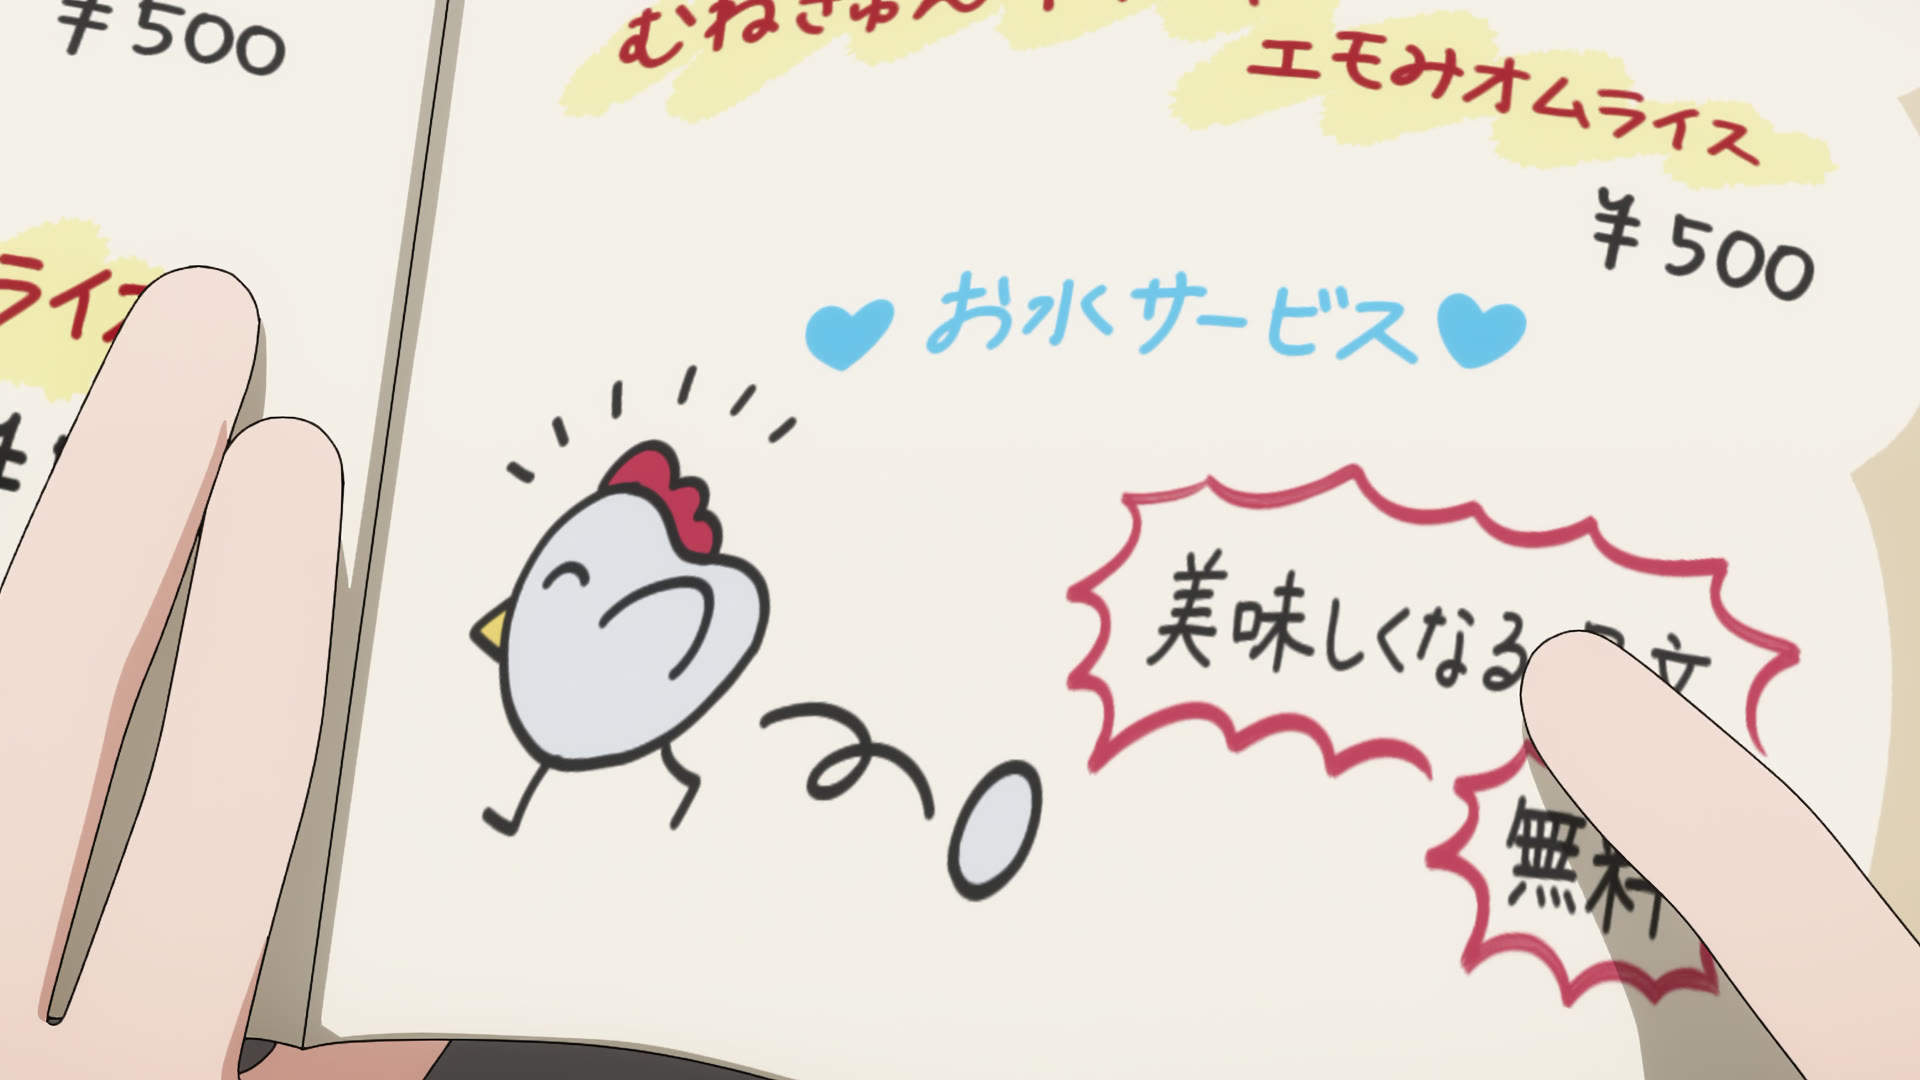 ¥500
ライス
むねきゅん
エモみオムライス
¥500
お水サービス
美味しくなる
文
無料